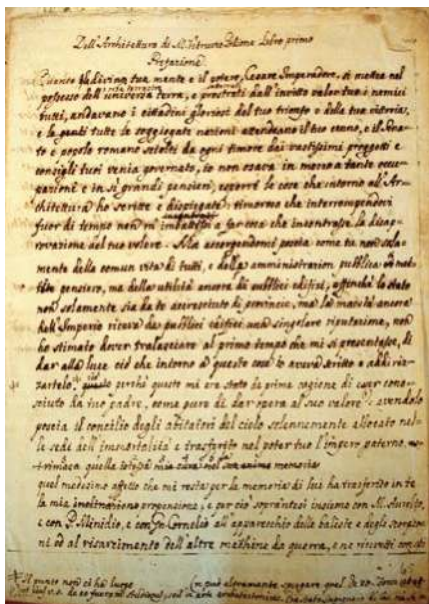 Dell'Architettura di M. Vitruvio Polione Libro primo
Prefazione.
Quando la divina tua mente e il potere, Cesare Imperadore, si mettea nel
possesso dell'universa terra, e prostrati dall'invitto valor tuo i nemici
tutti, andavano i cittadini gloriosi del tuo trionfo e della tua vittoria,
e le genti tutte le soggiogate nazioni attendeano il tuo cenno, e il Sena-
to e popolo romano sciolti da ogni timore dai vastissimi progetti e
consigli tuoi venia governato, io non osava in mezzo a tante occu-
pazioni e in sì grandi pensieri, le cose che intorno all'Ar-
chitettura ho scritte e dispiegate; timoroso che interrompendoti
fuor di tempo non m'imbattessi a far cosa che incontrasse la disap-
provazione del tuo volere. Ma accorgendomi poscia come tu non sola-
mente della comun vita di tutti, e della amministrazion pubblica
pensiero, ma della utilità ancora de' pubblici edifizi, affinché lo stato
non solamente sia da te accresciuto di provincie, ma la maestà ancora
dell'Imperio riceva da' pubblici edifizi una singolare riputazione, non
ho stimato dover tralasciare al primo tempo che mi si presentasse, di
dar alla luce ciò che intorno a queste cose io aveva scritto e addiriz-
zartelo: perché questo mi era stato da prima cagione di esser cono-
sciuto da tuo padre, come pure di dar opera al suo valore: avendolo
poscia il concilio degli abitatori del cielo solennemente allocato nel-
le sedi dell'immortalità e trasferito nel poter tuo l'impero paterno.
quella memoria
quel medesimo affetto che mi resta per la memoria di lui ha trasferito in te
la mia propensione, e per ciò insieme con M. Aurelio,
e con P. Minidio, e con Gn. Cornelio all'apparecchio delle baliste e degli scorpioni
ni ed al risarcimento dell'altre machine da guerra, e ne ricevetti con
il punto non ci ha luogo